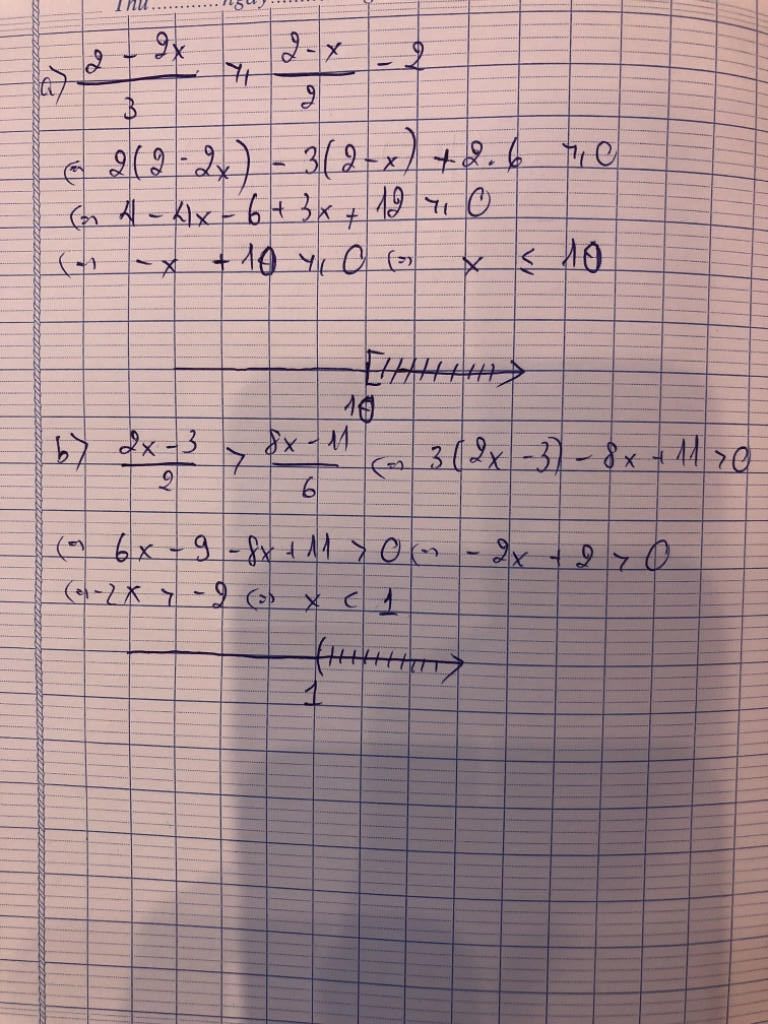 Thứ............ngày............
a) (2 - 2x)/3 ≥ (2-x)/2 - 2
⇔ 2(2 - 2x) - 3(2-x) + 2.6 ≥ 0
⇔ 4 - 4x - 6 + 3x + 12 ≥ 0
⇔ -x + 10 ≥ 0 ⇔ x ≤ 10
10
b) (2x - 3)/2 > (8x - 11)/6 ⇔ 3(2x - 3) - 8x + 11 > 0
⇔ 6x - 9 - 8x + 11 > 0 ⇔ -2x + 2 > 0
⇔ -2x > -2 ⇔ x < 1
1